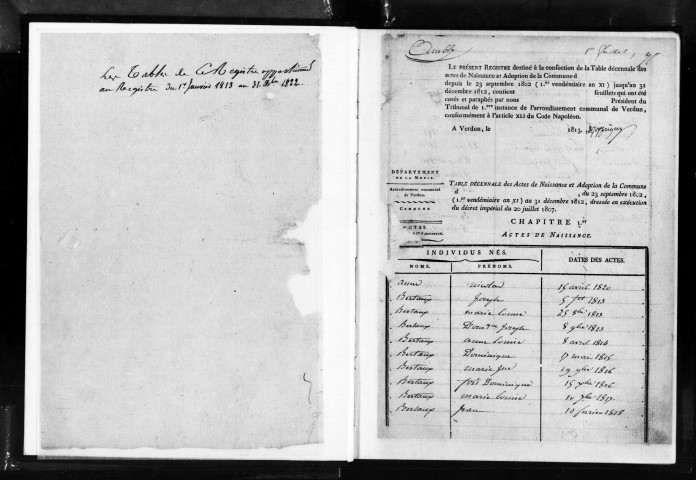 Les Tables de ce Registre appartiennent
au Registre du 1er Janvier 1813 au 31. Xbre 1822.
Ambly
LE PRÉSENT REGISTRE destiné à la confection de la Table décennale des
actes de Naissance et Adoption de la Commune d
depuis le 23 septembre 1802 (1.er vendémiaire an XI) jusqu'au 31
décembre 1812, contient feuillets qui ont été
cotés et paraphés par nous Président du
Tribunal de 1.ère instance de l'arrondissement communal de Verdun,
conformément à l'article XLI du Code Napoléon.
A Verdun, le 1813.
DÉPARTEMENT
DE LA MEUSE.
Arrondissement communal
de Verdun.
COMMUNE
ACTES
TABLE DÉCENNALE des Actes de Naissance et Adoption de la Commune
d , du 23 septembre 1802,
(1.er vendémiaire an XI) au 31 décembre 1812, dressée en exécution
du décret impérial du 20 juillet 1807.
CHAPITRE I.er
ACTES DE NAISSANCE.
INDIVIDUS NÉS.
DATES DES ACTES.
NOMS. PRÉNOMS.
anne nicolas 15 avril 1820
Bertaux Joseph 5 1813
Bertaux marie Louise 25 1813
Bertaux Joseph 8 9bre 1813
Bertaux anne Louise 8 avril 1814
Bertaux Dominique 17 mai 1815
Bertaux marie 19 9bre 1816
Bertaux Dominique 15 1816
Bertaux marie Louise 10 1817
Bertaux Jean 10 fevrier 1818